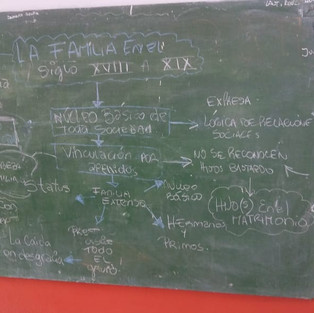 LA FAMILIA EN EL
Siglo XVIII A XIX
NÚCLEO BÁSICO DE
TODA SOCIEDAD
EXPRESA
LÓGICA DE RELACIONES
SOCIALES
VINCULACIÓN POR
APELLIDOS
NO SE RECONOCEN
HIJOS BASTARDO
Status
FAMILIA
EXTENSA
NÚCLEO
BÁSICO
HIJO(S) En El
MATRIMONIO
HERMANOS
Y
PRIMOS.
TODO
EL
La Caída
en desgracia